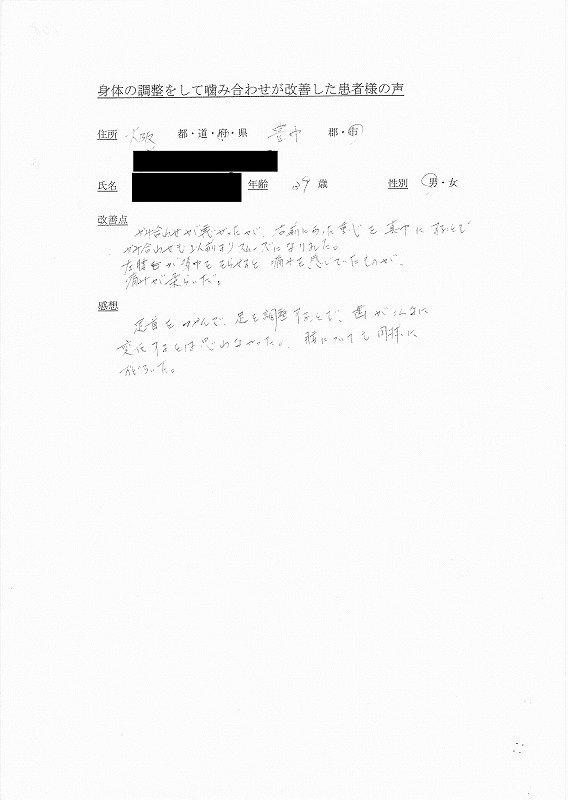 身体の調整をして噛み合わせが改善した患者様の声
住所 大阪 都・道・府・県 豊中 郡・市
氏名 年齢 39 歳 性別 男・女
改善点
かみ合わせが悪かったが、右前にあった重心を真中にすることで
かみ合わせも以前よりスムーズになりました。
左肩が背中をそらせると痛みを感じていたものが、
痛みが柔らいだ。
感想
足首をつかんで、足を調整することで、歯がこんなに
変化するとは思わなかった。肩についても同様に
おどろいた。